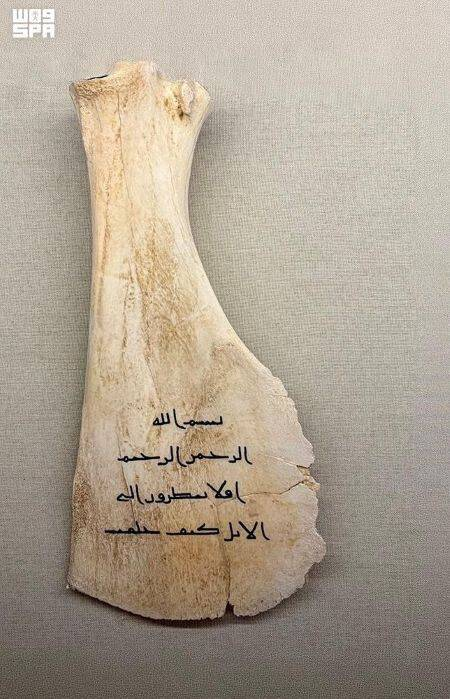 واس
SPA
بسم الله
الرحمن الرحيم
افلا ينظرون الى
الابل كيف خلقت